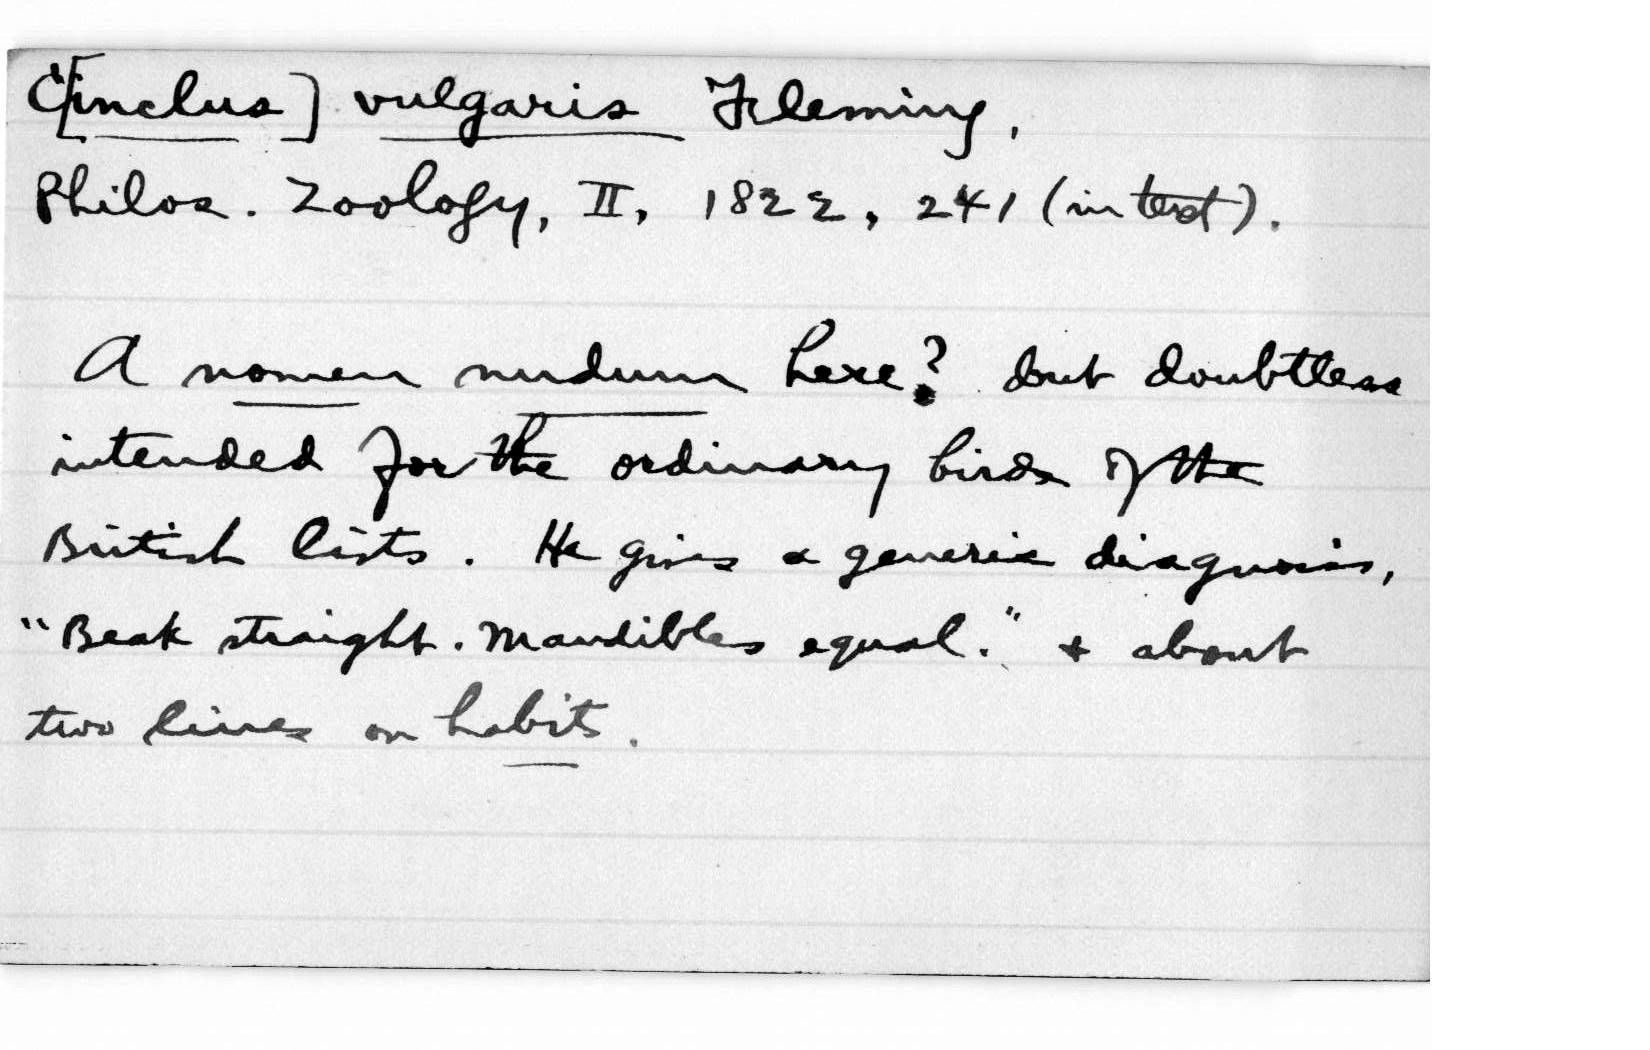 C[inclus] vulgaris Fleming,
Philos. Zoology, II, 1822, 241 (in text).
A nomen nudum here? but doubtless
intended for the ordinary birds of the
British lists. He gives a generic diagnosis,
"Beak straight. Mandibles equal." + about
two lines on habits.